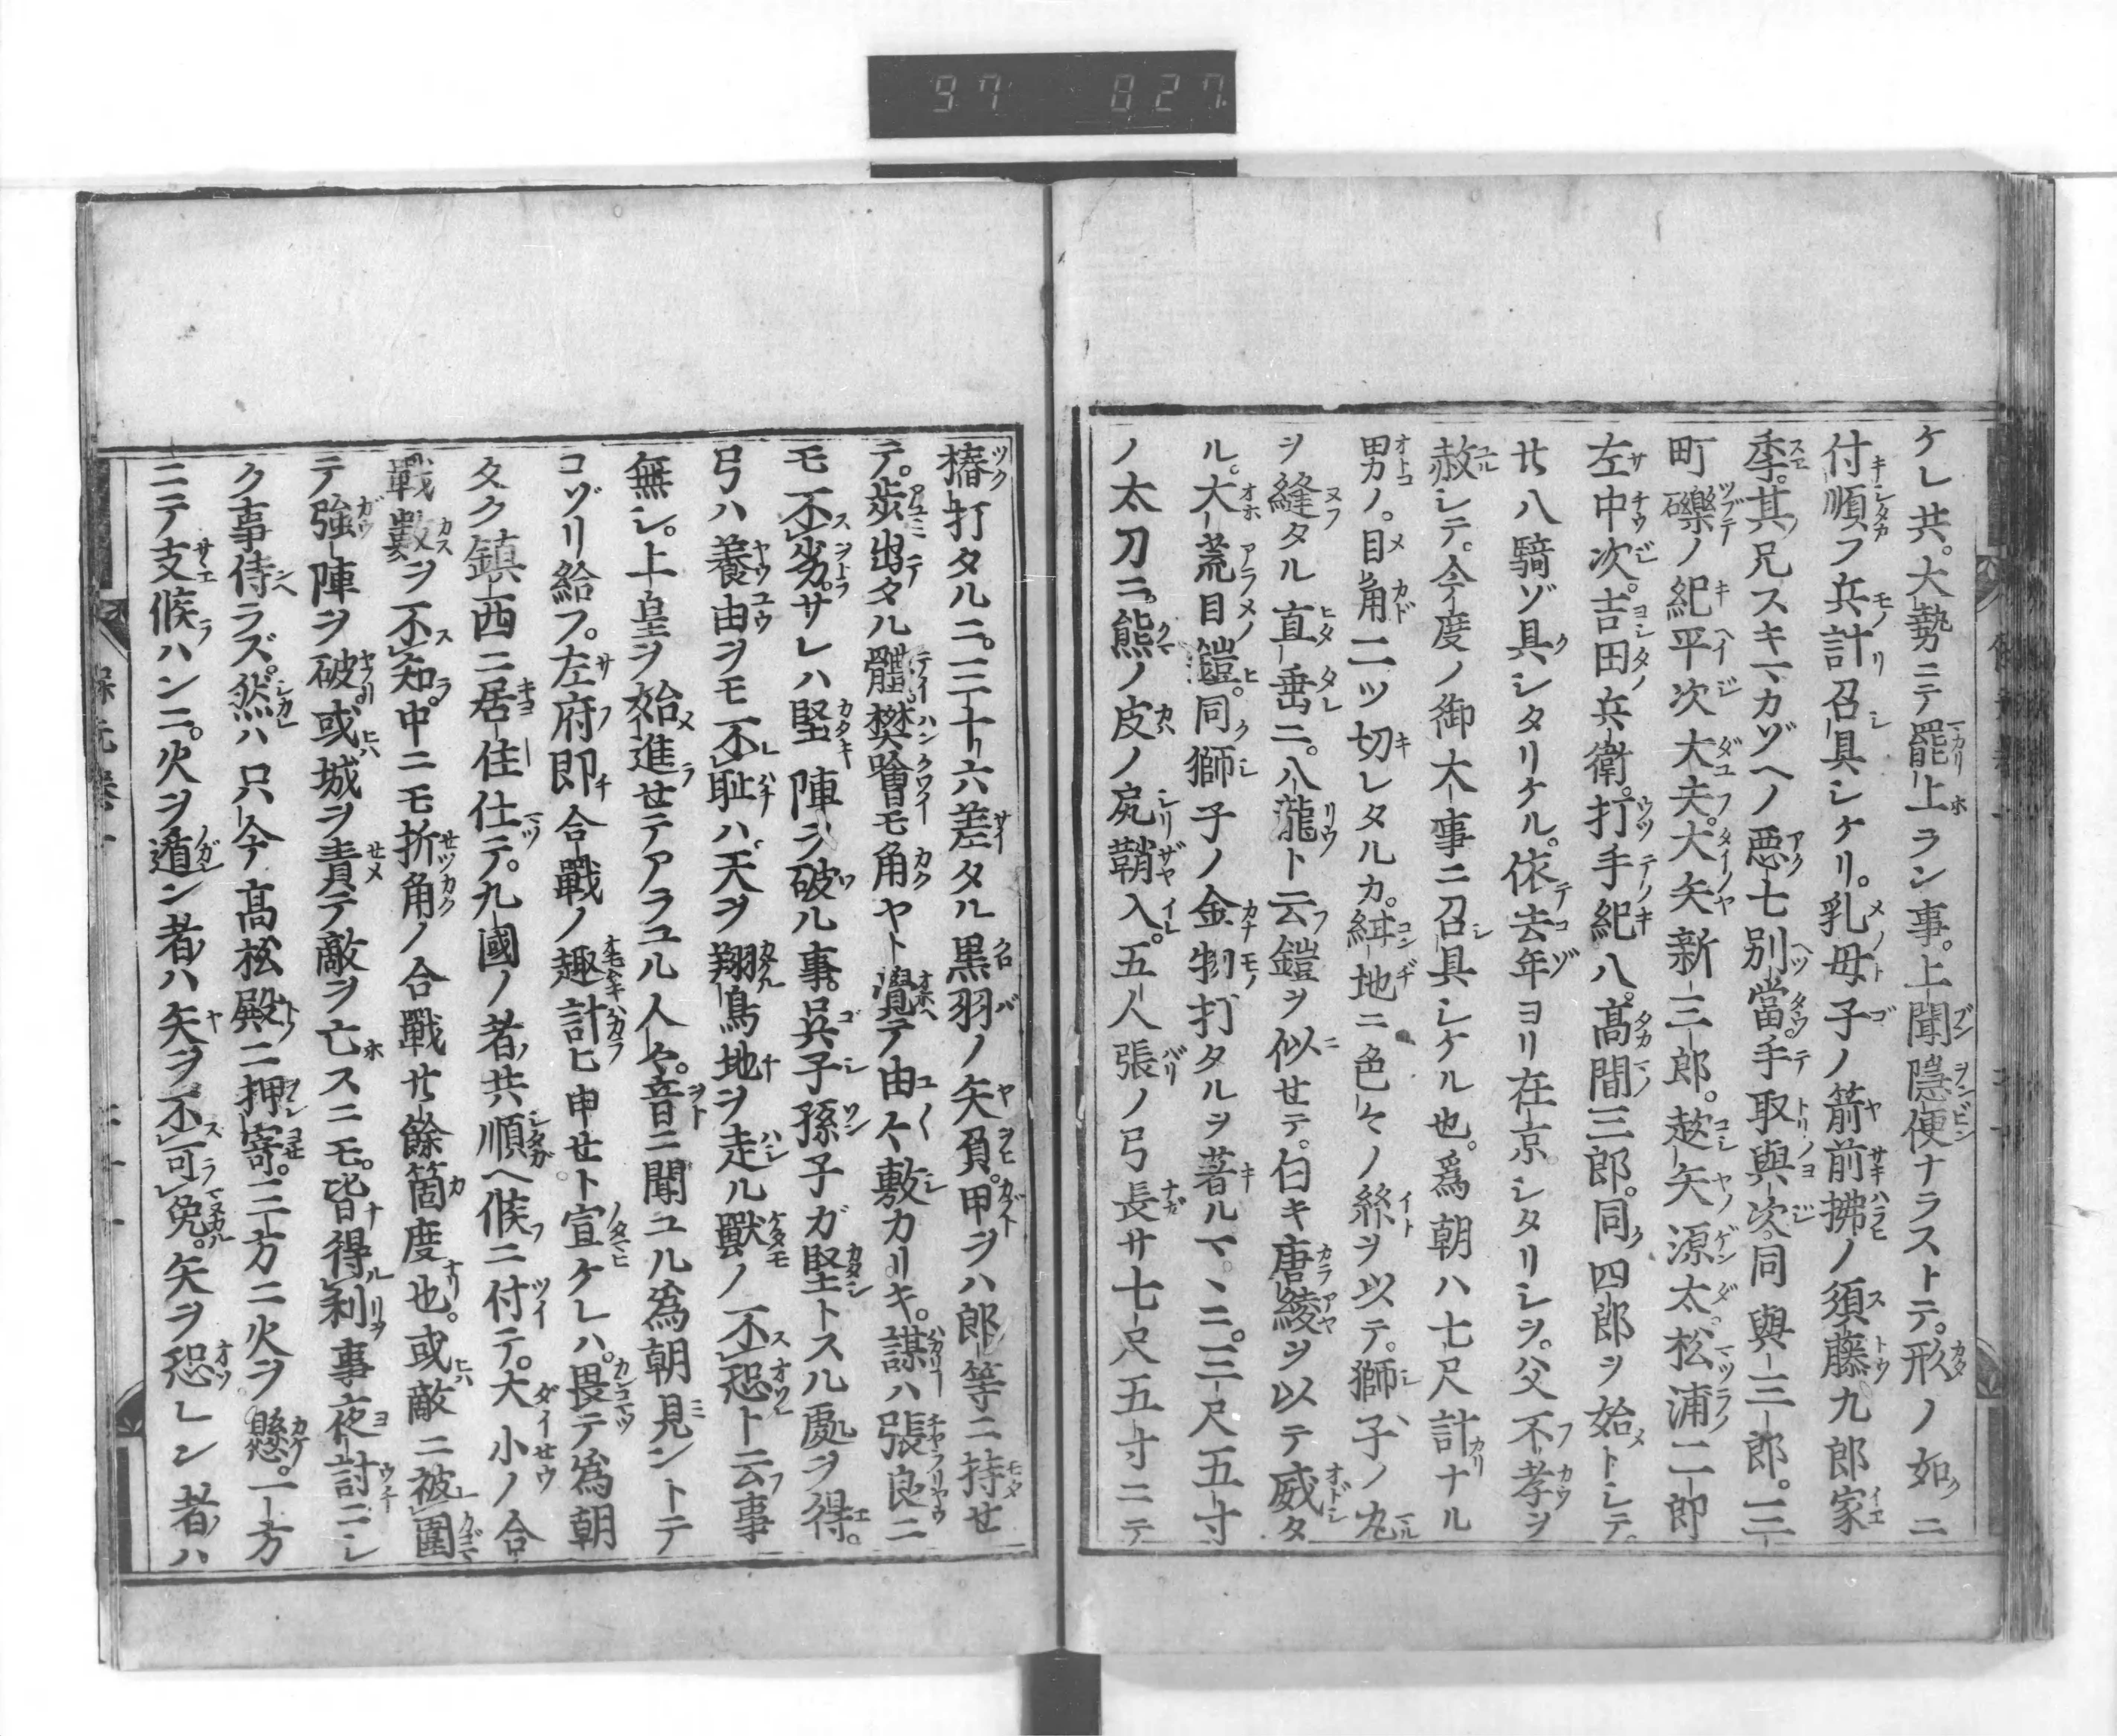 97 827
ケレ共。大勢ニテ罷上ラン事。上聞隠便ナラストテ。形ノ如ニ
付順フ兵計召具シケリ。乳母子ノ箭前拂ノ須藤九郎家
季。其兄スキマカゾヘノ悪七別當。手取與次。同與三郎。三
町礫ノ紀平次大夫。大矢新三郎。越矢源太。松浦二郎
左中次。吉田兵衛。打手紀八。高間三郎。同四郎ヲ始トシテ。
廿八騎ゾ具シタリケル。依去年ヨリ在京シタリシヲ。父不孝ヲ
赦シテ。今度ノ御大事ニ召具シケル也。爲朝ハ七尺計ナル
男ノ。目角二ツ切レタルカ。紺地ニ色々ノ絲ヲ以テ。獅子ノ丸
ヲ縫タル直垂ニ。八龍ト云鎧ヲ似セテ。白キ唐綾ヲ以テ威タ
ル。大荒目鎧。同獅子ノ金物打タルヲ著ルマヽニ。三尺五寸
ノ太刀ニ。熊ノ皮ノ尻鞘入。五人張ノ弓長サ七尺五寸ニテ
樁打タルニ。三十六差タル黒羽ノ矢負。甲ヲハ郎等ニ持セ
テ。歩出タル體。樊噲モ角ヤト覺テ由々敷カリキ。謀ハ張良ニ
モ不劣。サレハ堅陣ヲ破ル事。呉子孫子ガ堅トスル處ヲ得。
弓ハ養由ヲモ不恥ハ。天ヲ翔鳥地ヲ走ル獸ノ不恐ト云事
無シ。上皇ヲ始進セテアラユル人々。音ニ聞ユル爲朝見ントテ
コゾリ給フ。左府即合戰ノ趣計ヒ申セト宣ケレハ。畏テ爲朝
タク鎮西ニ居住仕テ。九國ノ者共順ヘ候ニ付テ。大小ノ合
戰數ヲ不知。中ニモ折角ノ合戰廿餘箇度也。或敵ニ被圍
テ強陣ヲ破。或城ヲ責テ敵ヲ亡スニモ。皆得利事夜討ニシ
ク事侍ラズ。然ハ只今高松殿ニ押寄。三方ニ火ヲ懸。一方
ニテ支候ハンニ。火ヲ遁ン者ハ矢ヲ不可免。矢ヲ恐レン者ハ